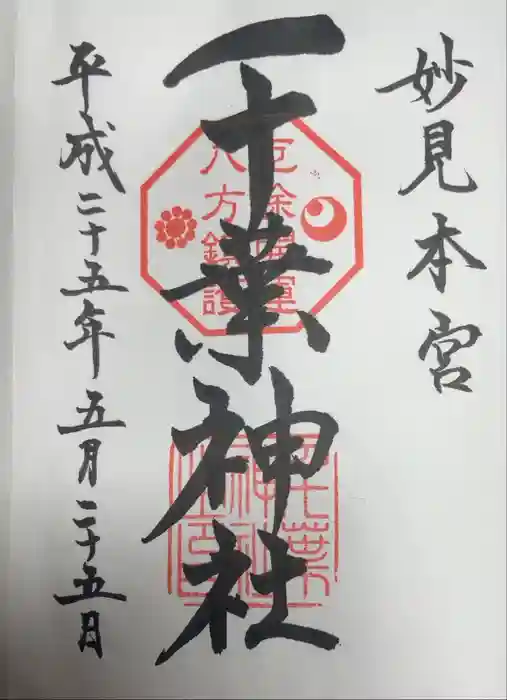 妙見本宮
千葉神社
厄除開運
八方鎮護
千葉
神社
之印
平成二十五年五月二十五日